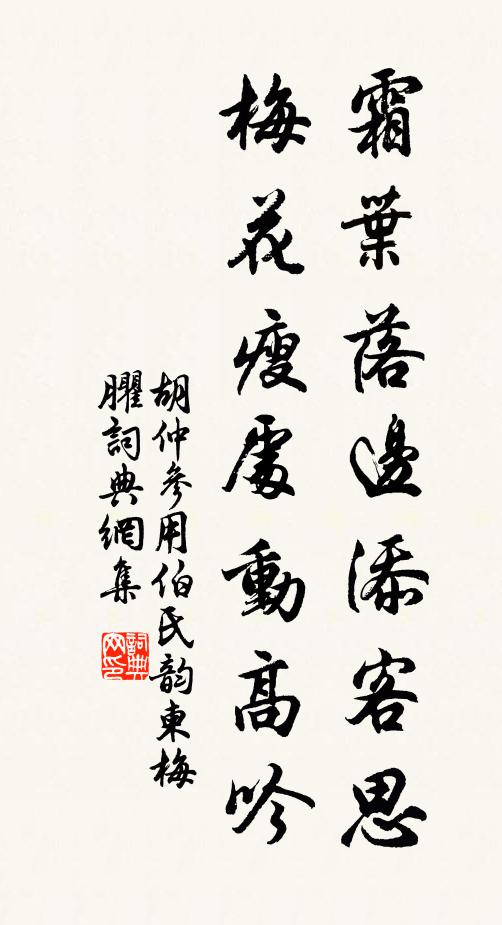 霜葉落邊添客思
梅花瘦處動高吟
胡仲參用伯氏韵東梅
臞詞典網集
詞典網印